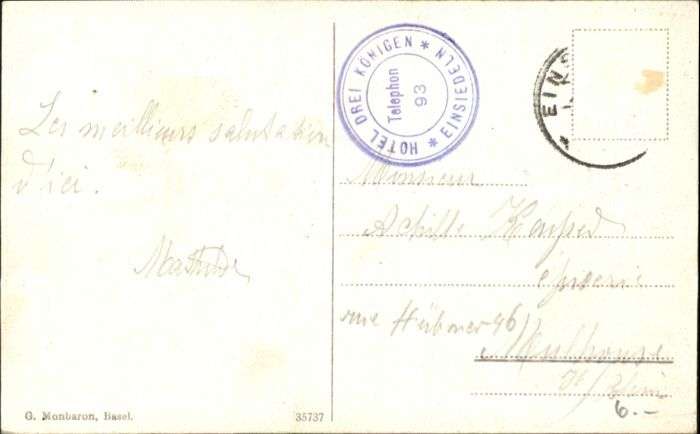 Les meilleurs salutations
d'ici.
Mathilde
G. Monbaron, Basel.
35737
HOTEL DREI KÖNIGEN * EINSIEDELN *
Telephon
93
EINS
Monsieur
Achille
épicerie
rue Hübner 46
Mulhouse
Ht/Rhin
6.-